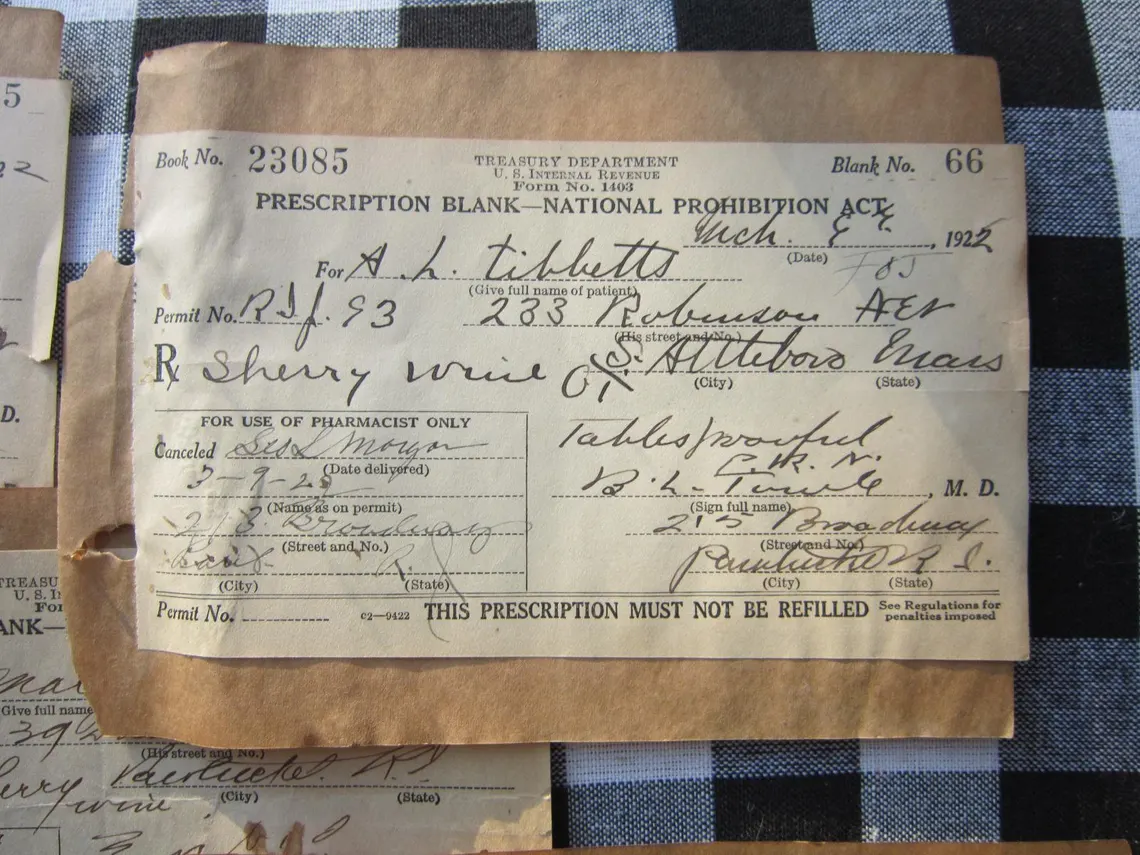 Book No. 23085
TREASURY DEPARTMENT
U. S. INTERNAL REVENUE
Form No. 1403
Blank No. 66
PRESCRIPTION BLANK—NATIONAL PROHIBITION ACT
Mch. , 1922
(Date)
For A. L. Tibbetts
(Give full name of patient)
Permit No. R I 93 233 Robinson
(His street and No.)
℞ Sherry wine S. Attleboro Mass
(City) (State)
FOR USE OF PHARMACIST ONLY
Canceled Morgan
(Date delivered)
3-9-22
(Name as on permit)
Broadway
(Street and No.)
R.
(City) (State)
Permit No.
Tablespoonful
B. L. Towle, M. D.
(Sign full name)
215 Broadway
(Street and No.)
Pawtucket R I.
(City) (State)
C2—9422 THIS PRESCRIPTION MUST NOT BE REFILLED See Regulations for
penalties imposed
5
D.
TREASU
U. S. I
For
ANK—
Give full name
39
(His street and No.)
Pawtucket. R I
(City) (State)
erry wine